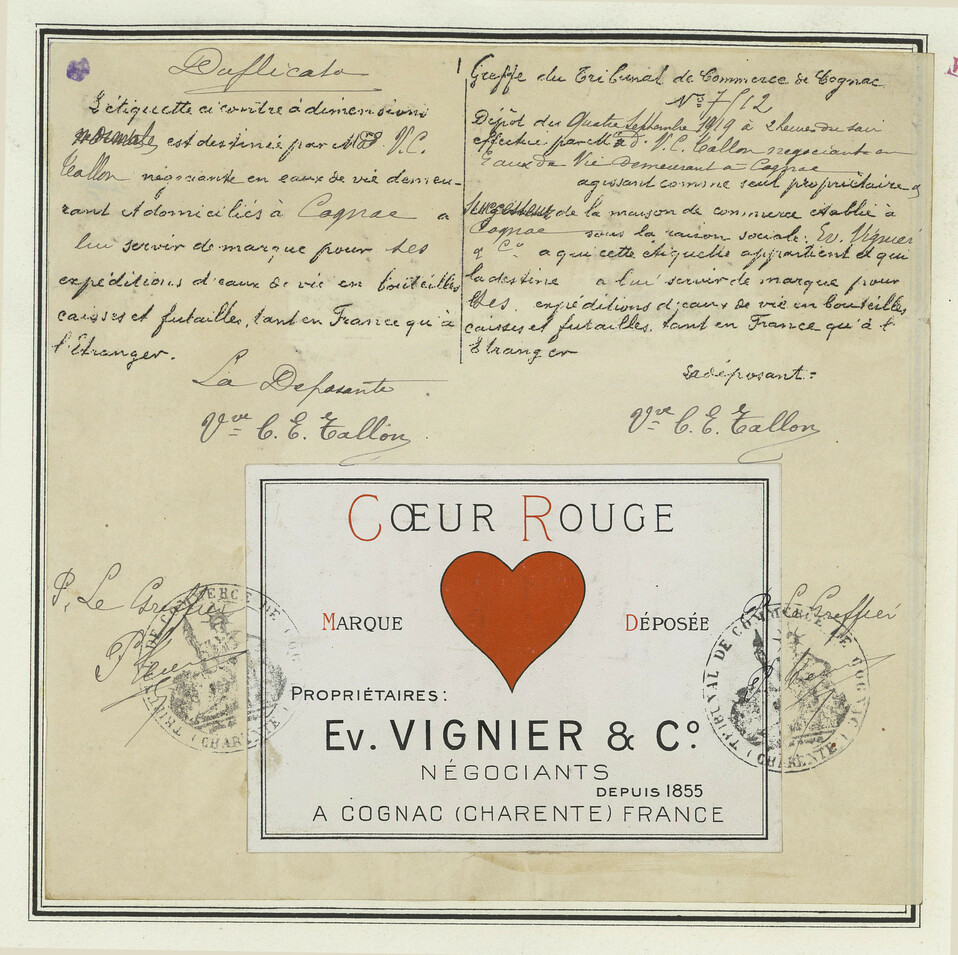 Duplicata
L'étiquette ci contre à dimensions
normales est destinée par Mad. V.C.
Tallon négociante en eaux de vie demeu-
rant et domiciliés à Cognac a
lui servir de marque pour ses
expéditions d'eaux de vie en bouteilles
caisses et futailles, tant en France qu'à
l'Etranger.
La Déposante
Vve C. E. Tallon
Greffe du Tribunal de Commerce de Cognac
No 7512
Dépôt du Quatre Septembre 1919 à 2 heures du soir
effectué par Mad. V. C. Tallon négociante en
Eaux de Vie demeurant à Cognac
agissant comme seul propriétaire
de la maison de commerce établie à
Cognac sous la raison sociale: Ev. Vignier
& Co a qui cette étiquette appartient et qui
la destine a lui servir de marque pour
ses expéditions d'eaux de vie en bouteilles
caisses et futailles, tant en France qu'à l'
Etranger
Le déposant:
Vve C. E. Tallon
CŒUR ROUGE
MARQUE DÉPOSÉE
PROPRIÉTAIRES:
EV. VIGNIER & Co
NÉGOCIANTS
DEPUIS 1855
A COGNAC (CHARENTE) FRANCE
P. Le Greffier
P. Le Greffier
TRIBUNAL DE COMMERCE DE COGNAC
(CHARENTE)
TRIBUNAL DE COMMERCE DE COGNAC
(CHARENTE)